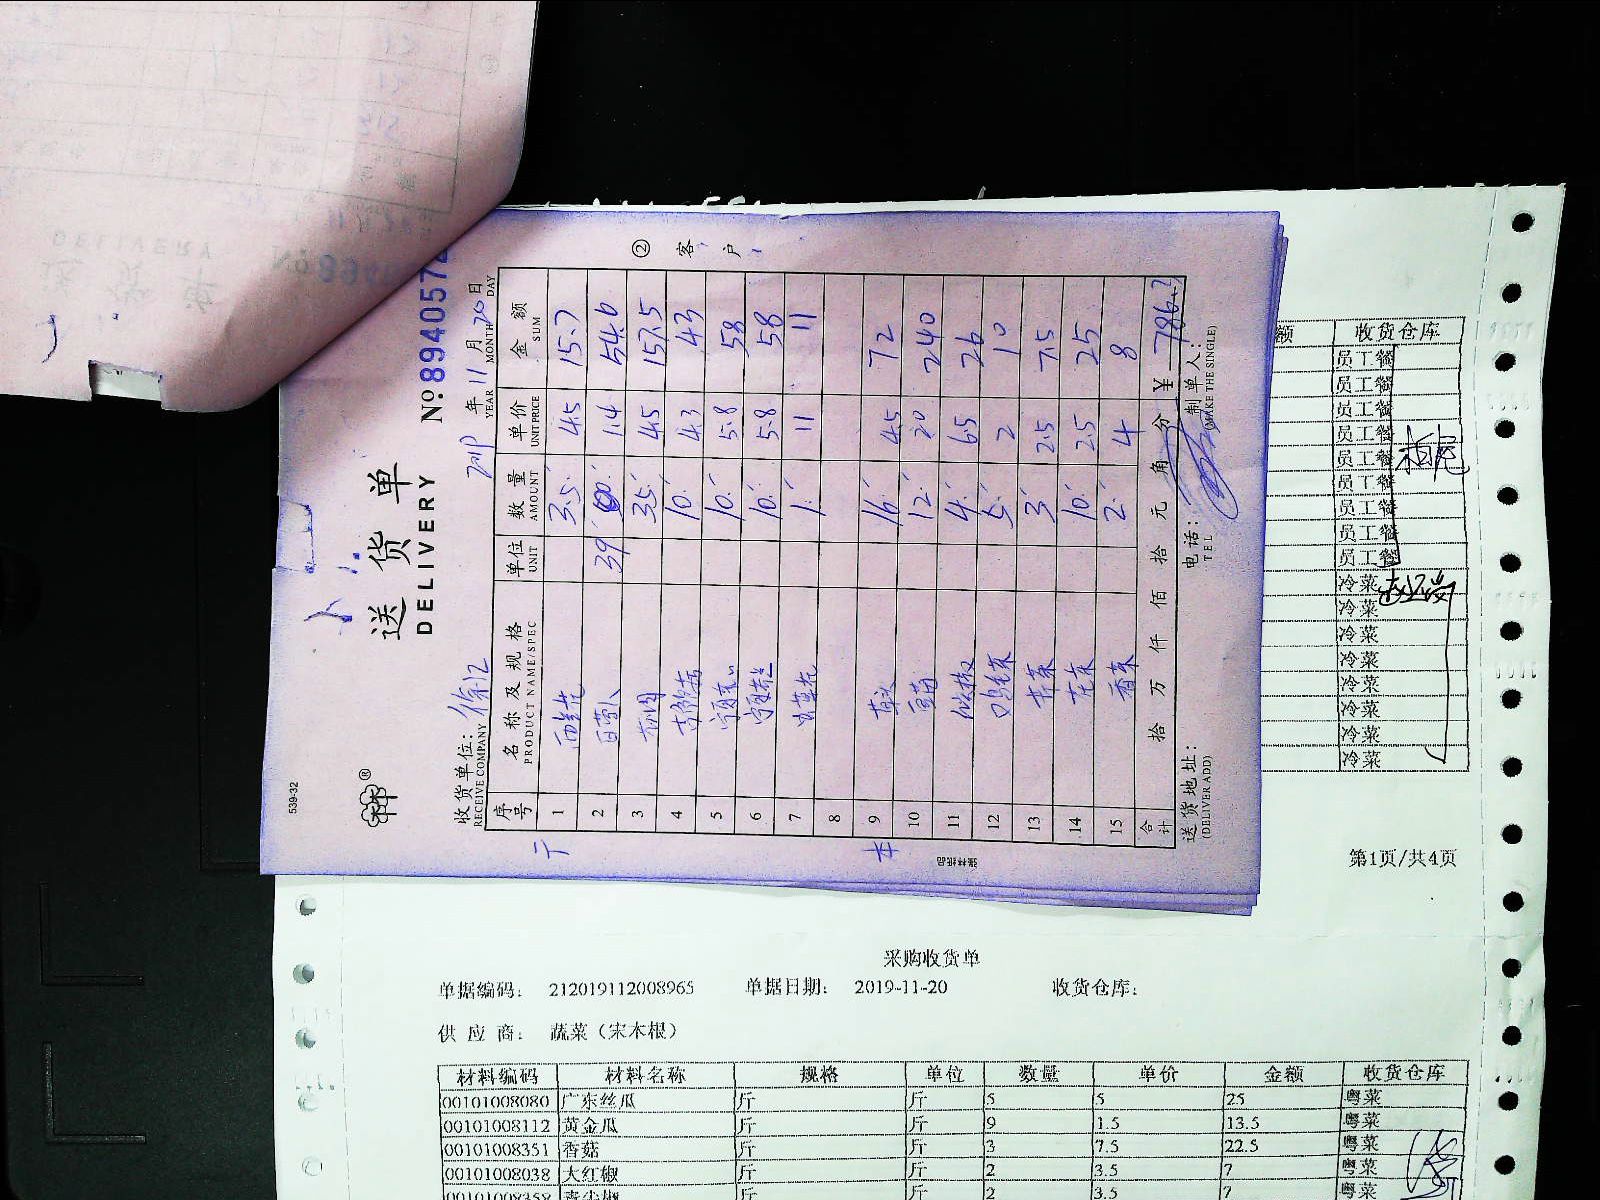 539-32
送货单
DELIVERY
№8940574
收货单位：徐汇
RECEIVE COMPANY
2019年11月20日
YEAR MONTH DAY
② 客户
序号 名称及规格 单位 数量 单价 金额
PRODUCT NAME/SPEC UNIT AMOUNT UNIT PRICE SUM
1 西兰花 3.5 4.5 15.7
2 白萝卜 39 1.4 54.6
3 35 4.5 157.5
4 10 4.3 43
5 10 5.8 58
6 10 5.8 58
7 1 11 11
8
9 16 4.5 72
10 12 20 240
11 4 6.5 26
12 5 2 10
13 3 2.5 7.5
14 10 2.5 25
15 香菜 2 4 8
合计 拾 万 仟 佰 拾 元 角 分 ¥ 786.2
送货地址： 电话： 制单人：
(DELIVER ADD) TEL (MAKE THE SINGLE)
强林纸品
额 收货仓库
员工餐
员工餐
员工餐
员工餐
员工餐
员工餐
员工餐
员工餐
员工餐
冷菜
冷菜
冷菜
冷菜
冷菜
冷菜
冷菜
冷菜
第1页/共4页
采购收货单
单据编码： 212019112008965 单据日期： 2019-11-20 收货仓库：
供 应 商： 蔬菜（宋本根）
材料编码 材料名称 规格 单位 数量 单价 金额 收货仓库
00101008080 广东丝瓜 斤 斤 5 5 25 粤菜
00101008112 黄金瓜 斤 斤 9 1.5 13.5 粤菜
00101008351 香菇 斤 斤 3 7.5 22.5 粤菜
00101008038 大红椒 斤 斤 2 3.5 7 粤菜
00101008358 青尖椒 斤 斤 2 3.5 7 粤菜